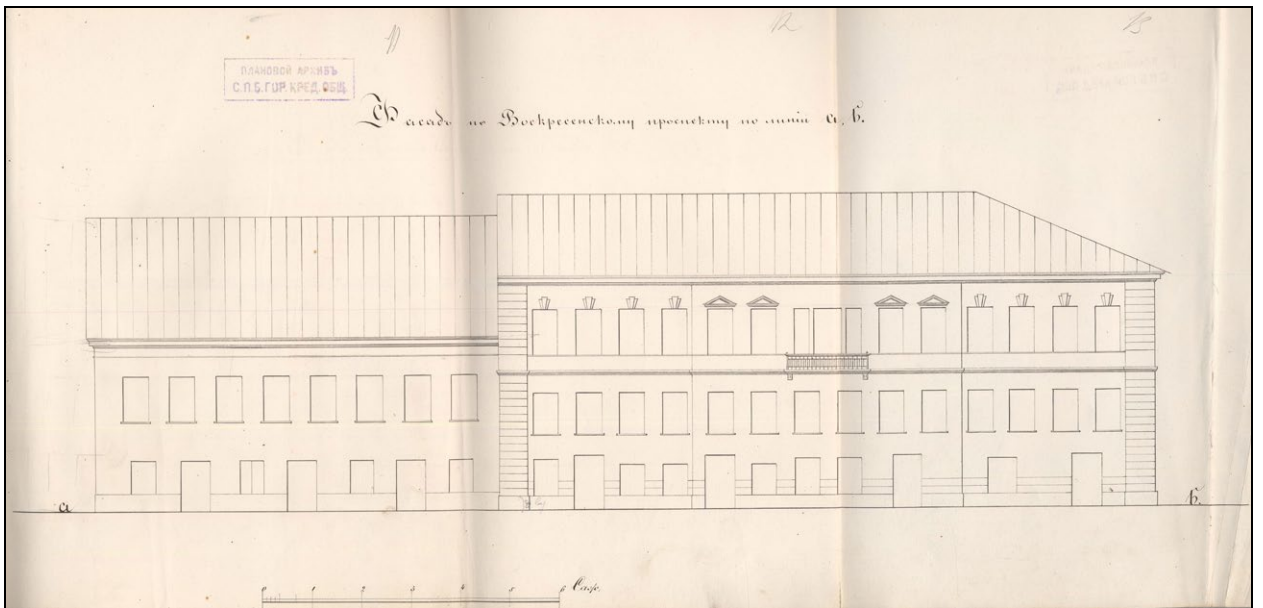 11 12 13
ПЛАНОВОЙ АРХИВЪ
С.П.Б. ГОР. КРЕД. ОБЩ.
Фасадъ по Воскресенскому проспекту по линіи а, б.
а б.
0 1 2 3 4 5 6 Саж.